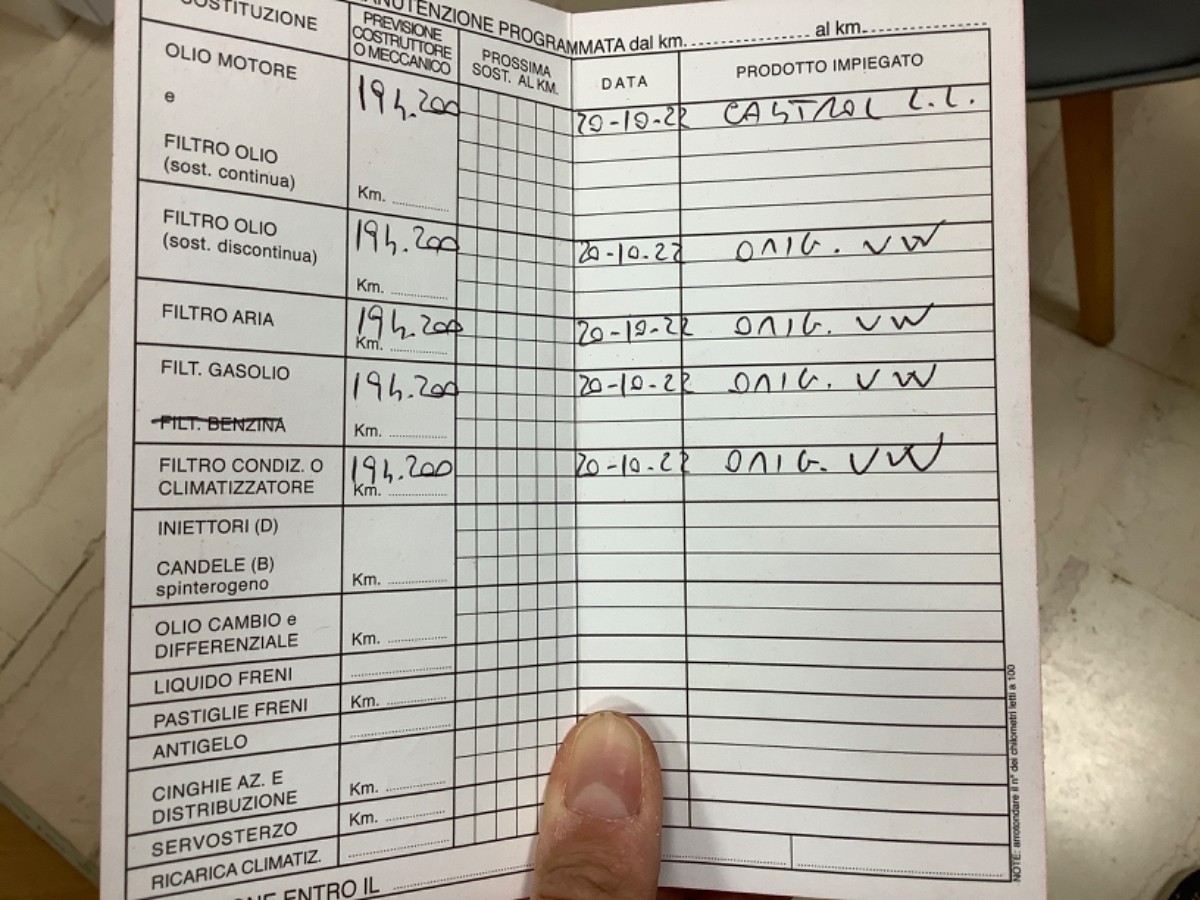 MANUTENZIONE PROGRAMMATA dal km. al km.
SOSTITUZIONE PREVISIONE COSTRUTTORE O MECCANICO PROSSIMA SOST. AL KM. DATA PRODOTTO IMPIEGATO
OLIO MOTORE 194.200 20-10-22 CASTROL L.L.
e
FILTRO OLIO
(sost. continua) Km.
FILTRO OLIO 194.200 20-10-22 ORIG. VW
(sost. discontinua)
Km.
FILTRO ARIA 194.200 20-10-22 ORIG. VW
Km.
FILT. GASOLIO 194.200 20-10-22 ORIG. VW
FILT. BENZINA Km.
FILTRO CONDIZ. O 194.200 20-10-22 ORIG. VW
CLIMATIZZATORE Km.
INIETTORI (D)
CANDELE (B)
spinterogeno Km.
OLIO CAMBIO e
DIFFERENZIALE Km.
LIQUIDO FRENI
PASTIGLIE FRENI Km.
ANTIGELO
CINGHIE AZ. E
DISTRIBUZIONE Km.
SERVOSTERZO Km.
RICARICA CLIMATIZ.
ENTRO IL
NOTE: arrotondare il n° dei chilometri letti a 100